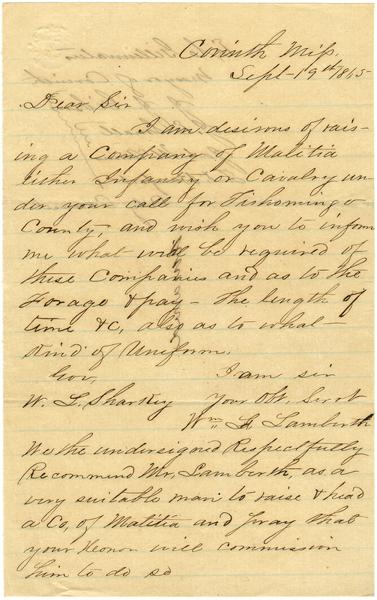 Corinth Miss.
Sept- 19th 1865-
Dear Sir
I am desirous of rais-
ing a Company of Malitia
eisher Infantry or Cavalry un-
der your call for Tishomingo
County, and wish you to inform
me what will be required of
these Companies and as to the
Forage & pay- The length of
time &c, also as to what-
Kind of Uniform.
Gov,
I am sir
W. L. Sharkey
Your Obt, Servt
Wm H Lamberth
We the undersigned Respectfully
Recommend Mr, Lamberth, as a
very suitable man to raise & head
a Co, of Malitia and pray that
your Honor will commission
him to do so